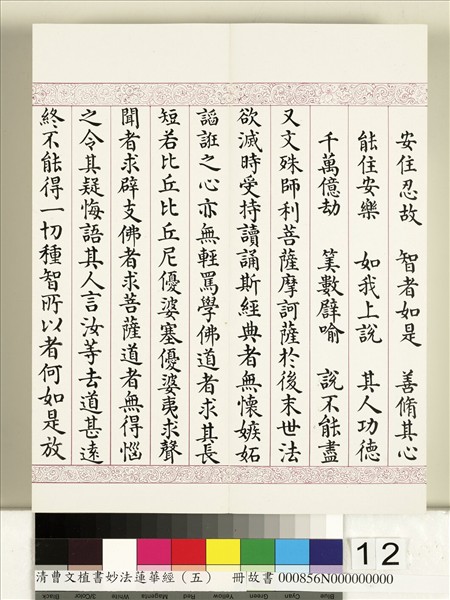 安住忍故　智者如是　善脩其心
能住安樂　如我上說　其人功德
千萬億劫　筭數譬喻　說不能盡
又文殊師利菩薩摩訶薩於後末世法
欲滅時受持讀誦斯經典者無懷嫉妬
謟誑之心亦無輕罵學佛道者求其長
短若比丘比丘尼優婆塞優婆夷求聲
聞者求辟支佛者求菩薩道者無得惱
之令其疑悔語其人言汝等去道甚遠
終不能得一切種智所以者何如是放
12
清曹文植書妙法蓮華經（五）　冊故書 000856N000000000
Black 3/Color White Magenta Red Yellow Green Cyan Blue